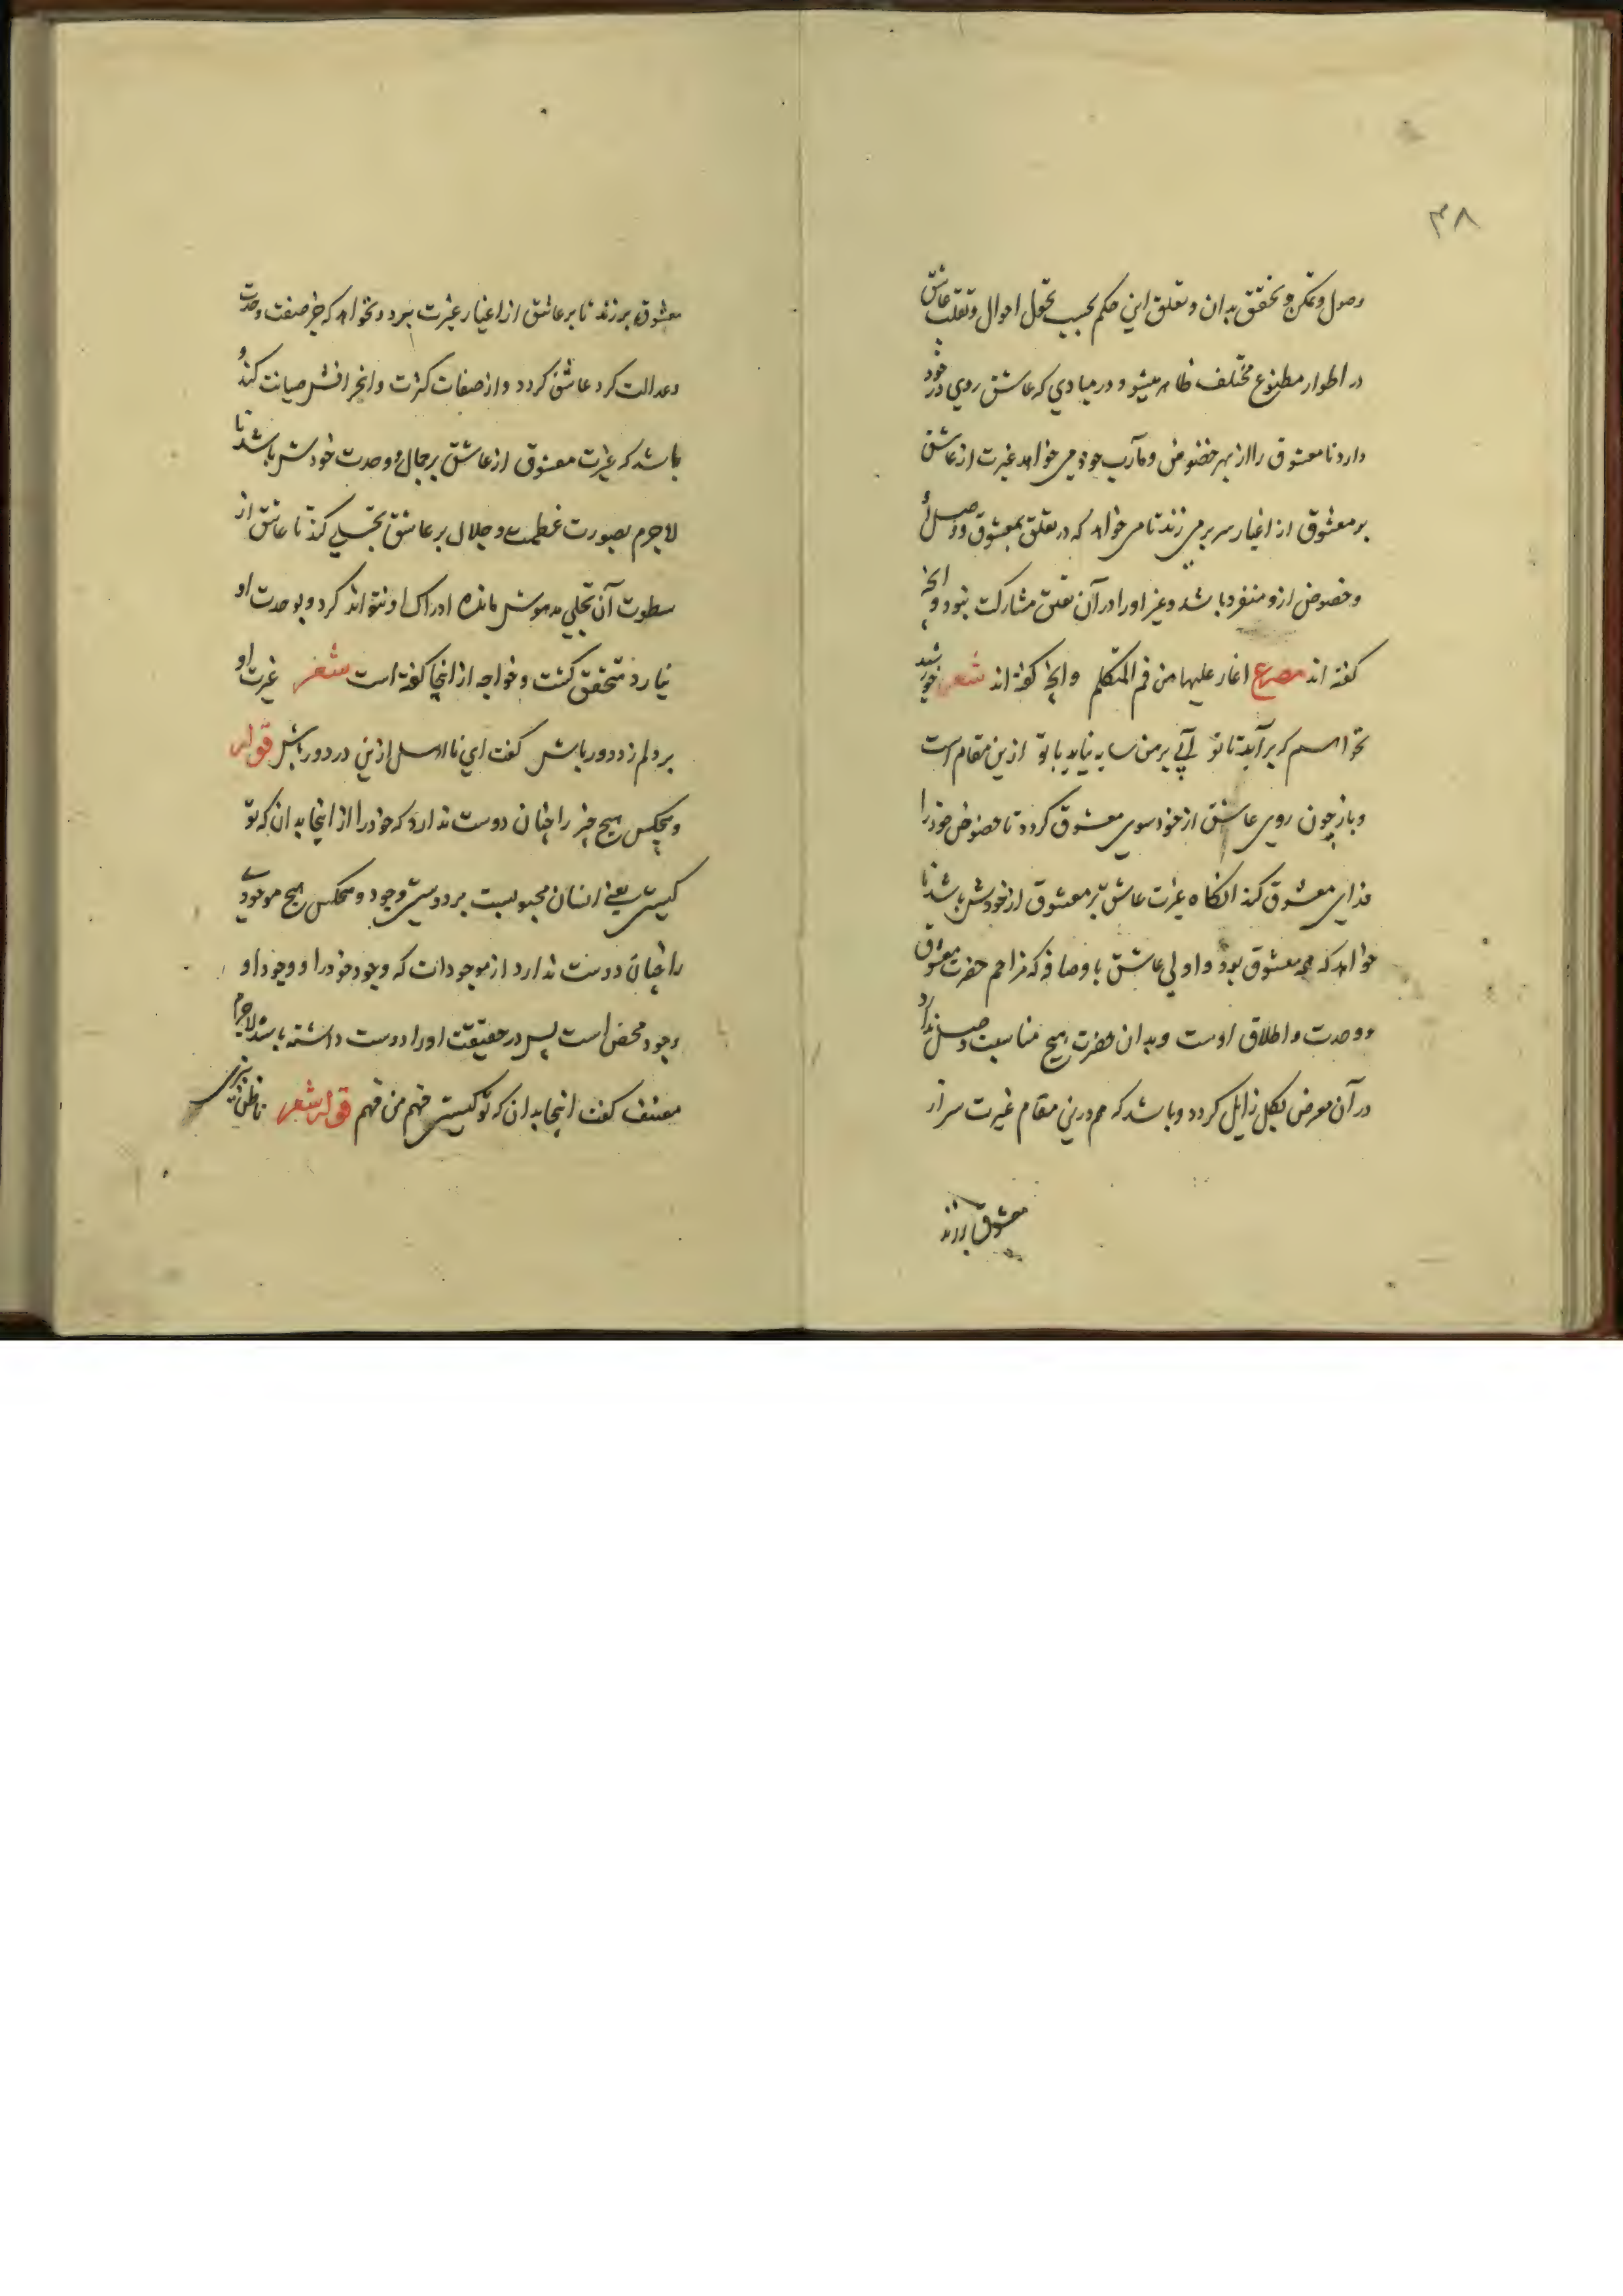 ۳۸
وصول و تمکن و تحقق بدان و تعلق این حکم بحسب تحول احوال و تقلب عاشق
در اطوار مختلف ظاهر میشود در مبادی که عاشق روی در خود
دارد تا معشوق را از بهر خضوص و مآرب خود می خواهد غیرت از عاشق
بر معشوق از اغیار سر بر می زند تا می خواهد که در تعلق بمعشوق و وصل
و خصوص ازو منفرد باشد و غیر او را در آن تعلق مشارکت نبود و آنچه
گفته اند مصراع اغار علیها من فم المتکلم و آنچه گفته اند شعر خورشید
نخواهم که برآید تا تو آئی بر من سایه نیاید با تو ازین مقام است
و باز چون روی عاشق از خود سوی معشوق گردد تا خصوص خود را
فدای معشوق کند انگاه غیرت عاشق بر معشوق از خودش باشد تا
خواهد که همه معشوق بود و اولی عاشق باوصافه که مزاحم حضرت معشوق
و وحدت و اطلاق اوست و بدان حضرت هیچ مناسبت و صل ندارد
در آن معرض بکل زایل گردد و باشد که هم درین مقام غیرت سر از
معشوق برزند
معشوق برزند تا بر عاشق از اغیار غیرت برد و نخواهد که جز صفت وحدت
و عدالت گرد عاشق گردد و از صفات کثرت و انحرافش صیانت کند و
باشد که غیرت معشوق از عاشق بر جمال و وحدت خودش باشد تا
لاجرم بصورت عظمت و جلال بر عاشق تجلی کند تا عاشق از
سطوت آن تجلی مدهوش مانده ادراک او نتواند کرد و بوحدت او
نیارد متحقق گشت و خواجه از اینجا گفته است شعر غیرت او
بر دلم زد دور باش گفت ای نااهل ازین در دور باش قوله
و هیچکس هیچ چیز را چنان دوست ندارد که خود را از اینجا بدان که تو
کیستی یعنی انسان مجبولست بر دوستی وجود و هیچکس هیچ موجودی
را چنان دوست ندارد از موجودات که وجود خود را و وجود او
وجود محض است پس در حقیقت او را دوست داشته باشد لاجرم
مصنف گفت اینجا بدان که تو کیستی فهم من فهم قوله شعر تا ظن نبری